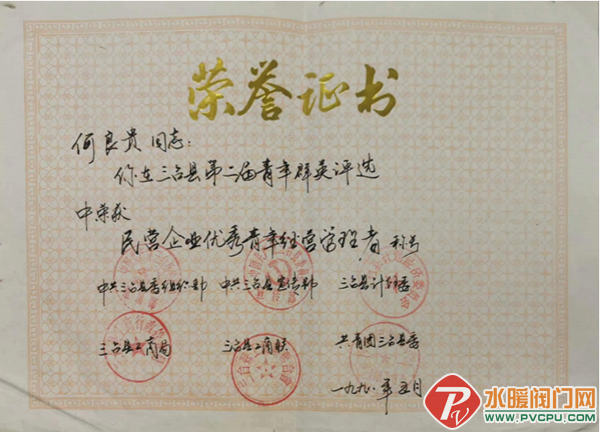 荣誉证书
何良贵同志：
你在三台县第二届青年群英评选
中荣获
民营企业优秀青年经营管理者称号
中共三台县委组织部 中共三台县委宣传部 三台县计经委
三台县工商局 三台县工商联 共青团三台县委
一九九八年五月
水暖阀门网
WWW.PVCPU.COM